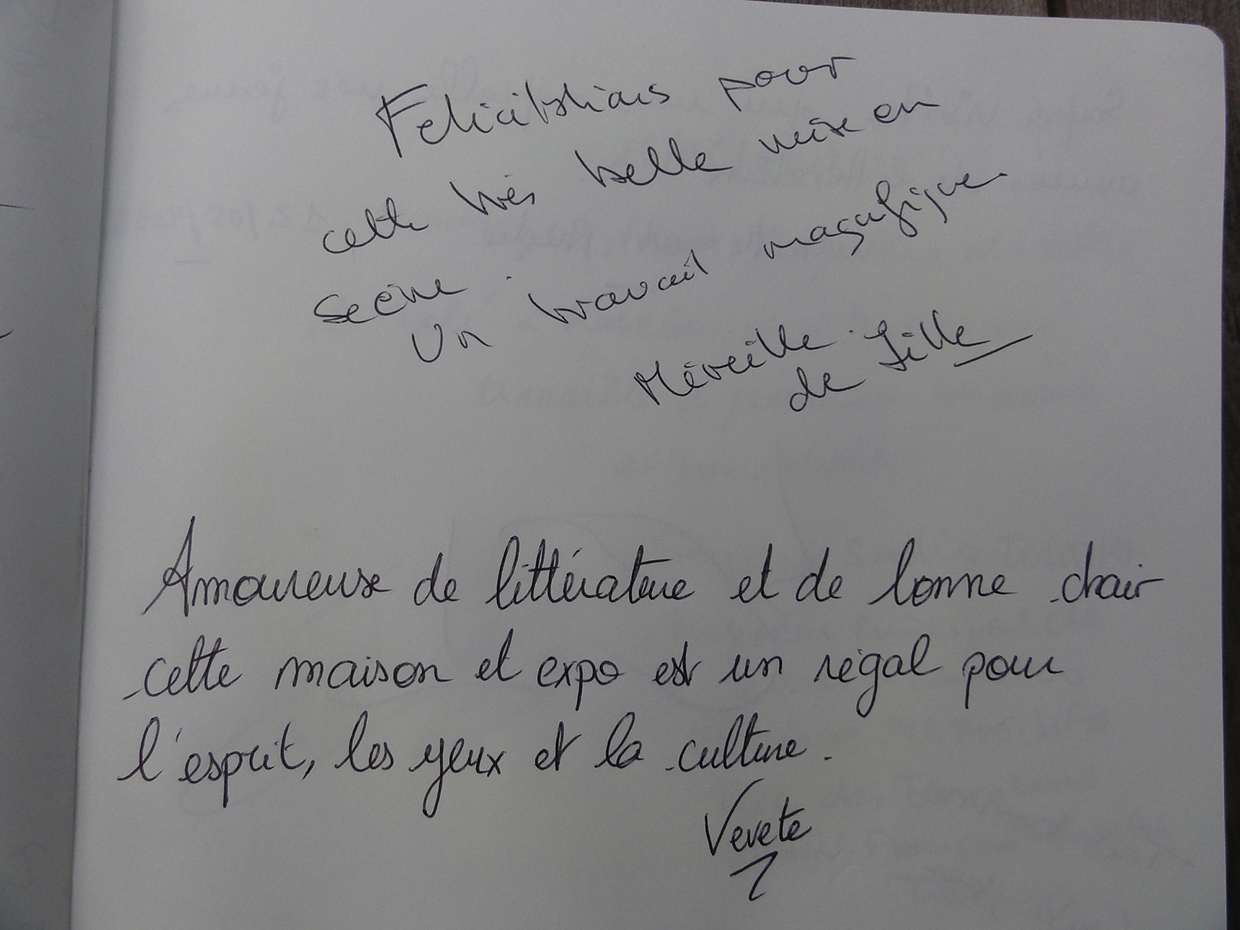 Felicitations pour
cette très belle mise en
scène.
Un travail magnifique.
Mireille
de Lille
Amoureuse de littérature et de bonne chair
cette maison et expo est un régal pour
l'esprit, les yeux et la culture.